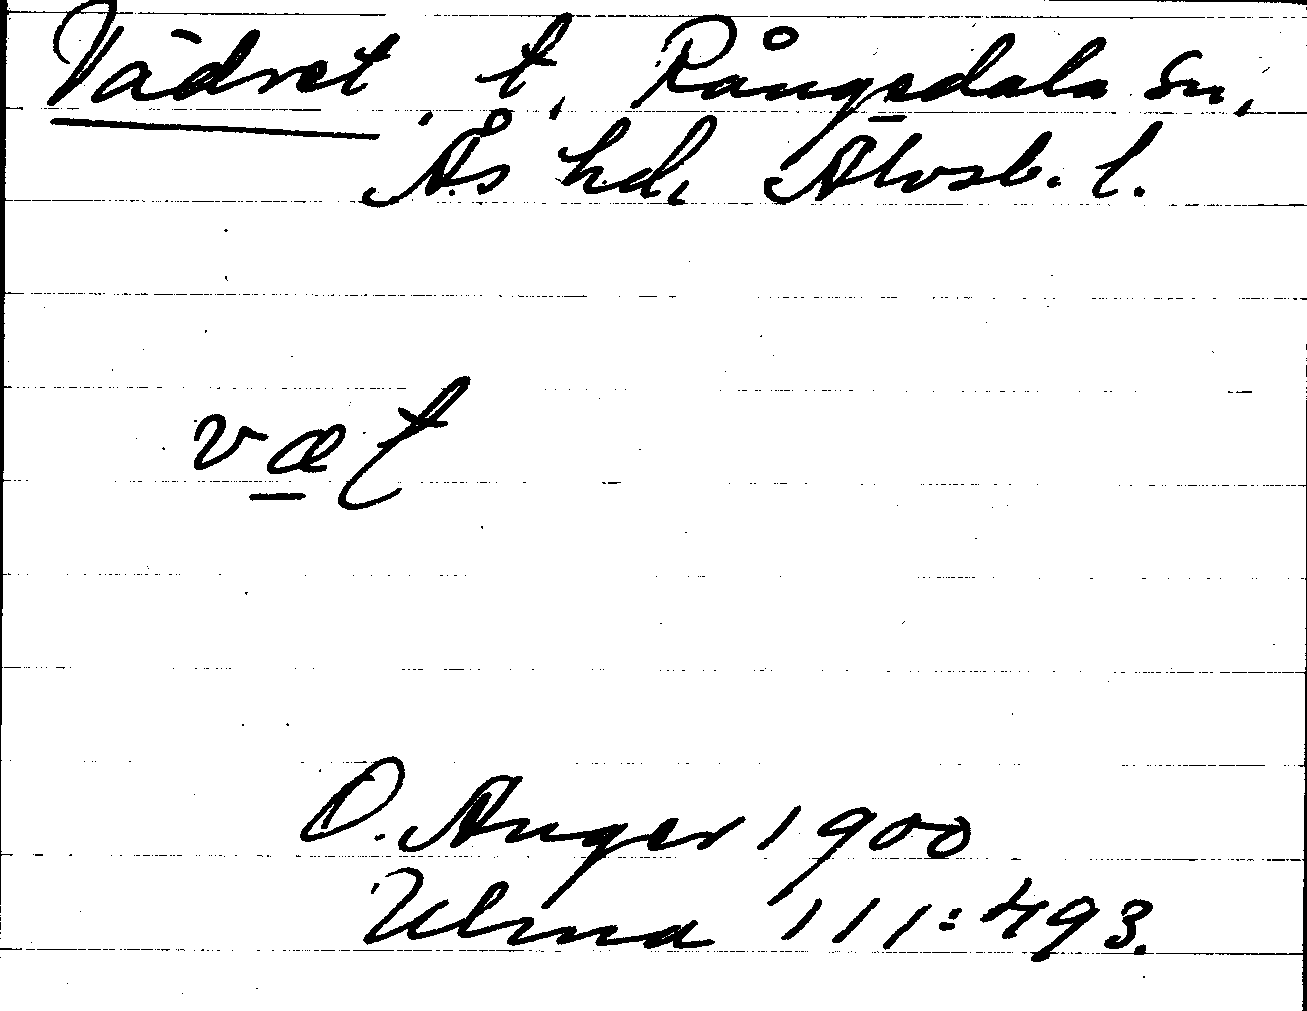 Vädret t. Rångedala sn,
Ås hd, Älvsb. l.
væt
O. Anger 1900
Ulma 111:493.